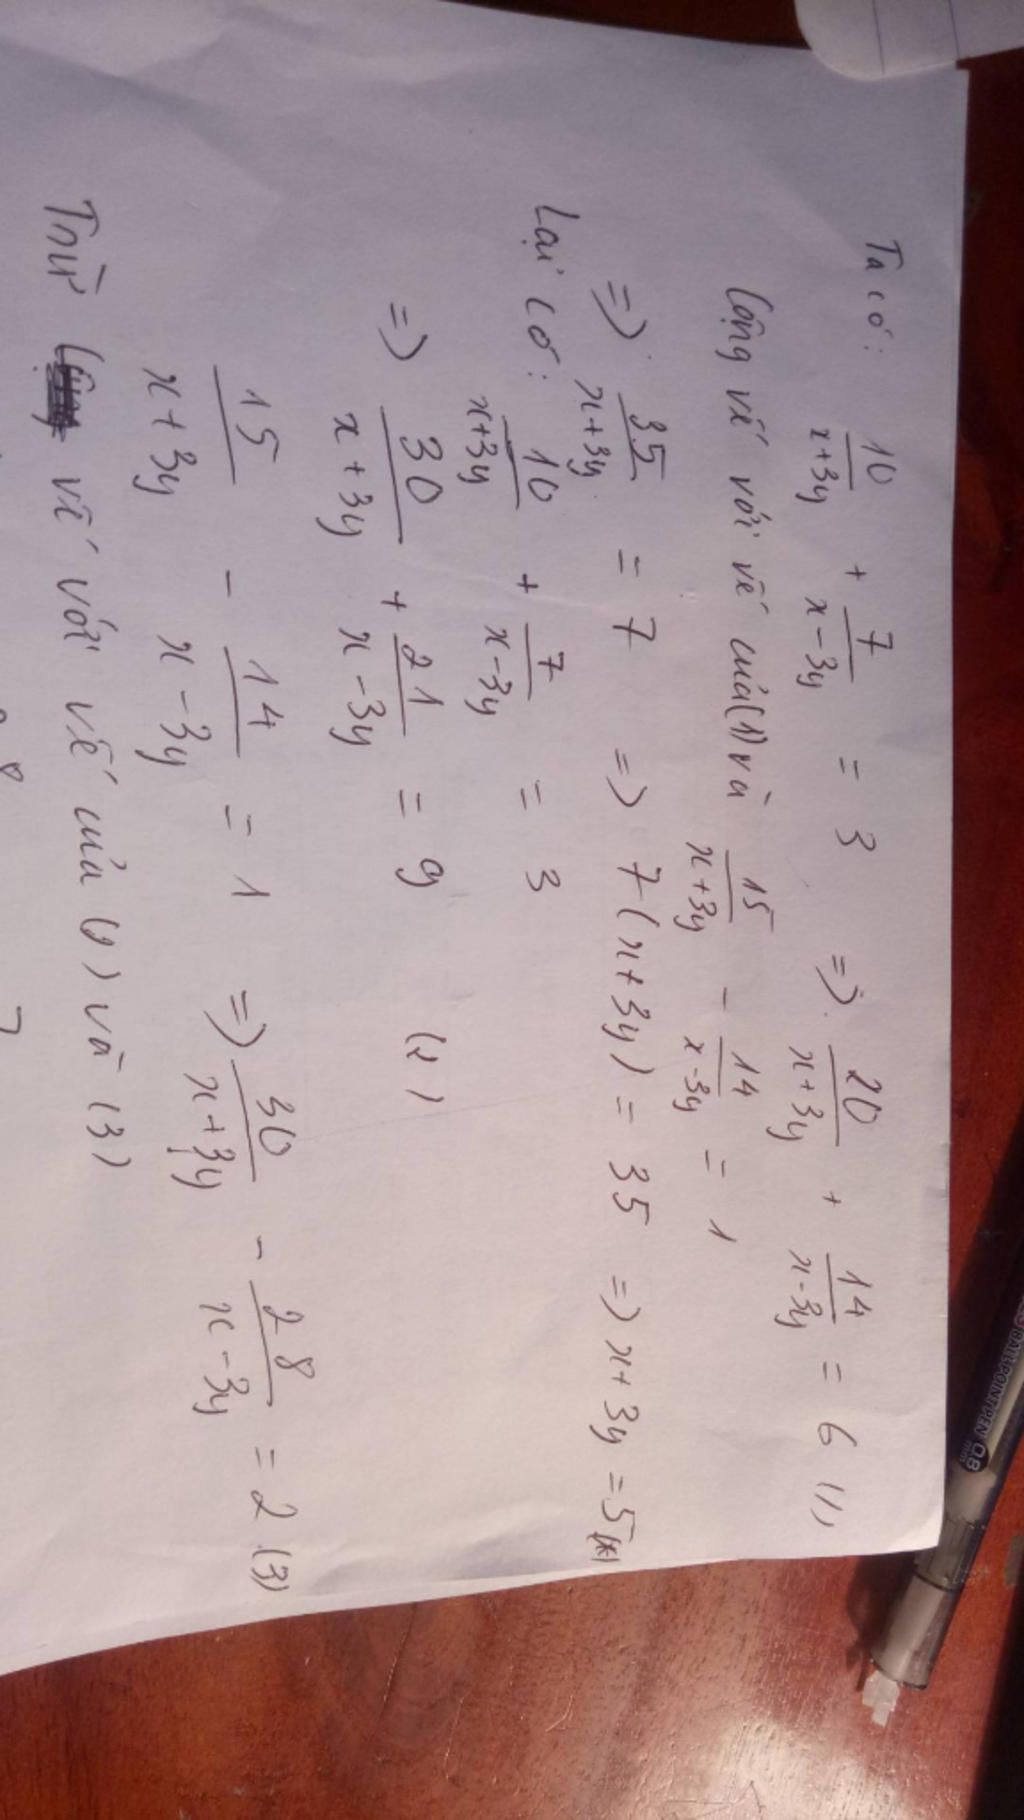 Ta có: 10/(x+3y) + 7/(x-3y) = 3 => 20/(x+3y) + 14/(x-3y) = 6 (1)
Cộng vế với vế của (1) và 15/(x+3y) - 14/(x-3y) = 1
=> 35/(x+3y) = 7 => 7(x+3y) = 35 => x+3y = 5 (*)
Lại có: 10/(x+3y) + 7/(x-3y) = 3
=> 30/(x+3y) + 21/(x-3y) = 9 (2)
15/(x+3y) - 14/(x-3y) = 1 => 30/(x+3y) - 28/(x-3y) = 2 (3)
Trừ vế với vế của (2) và (3)
BALLPOINT PEN 0.8 mm